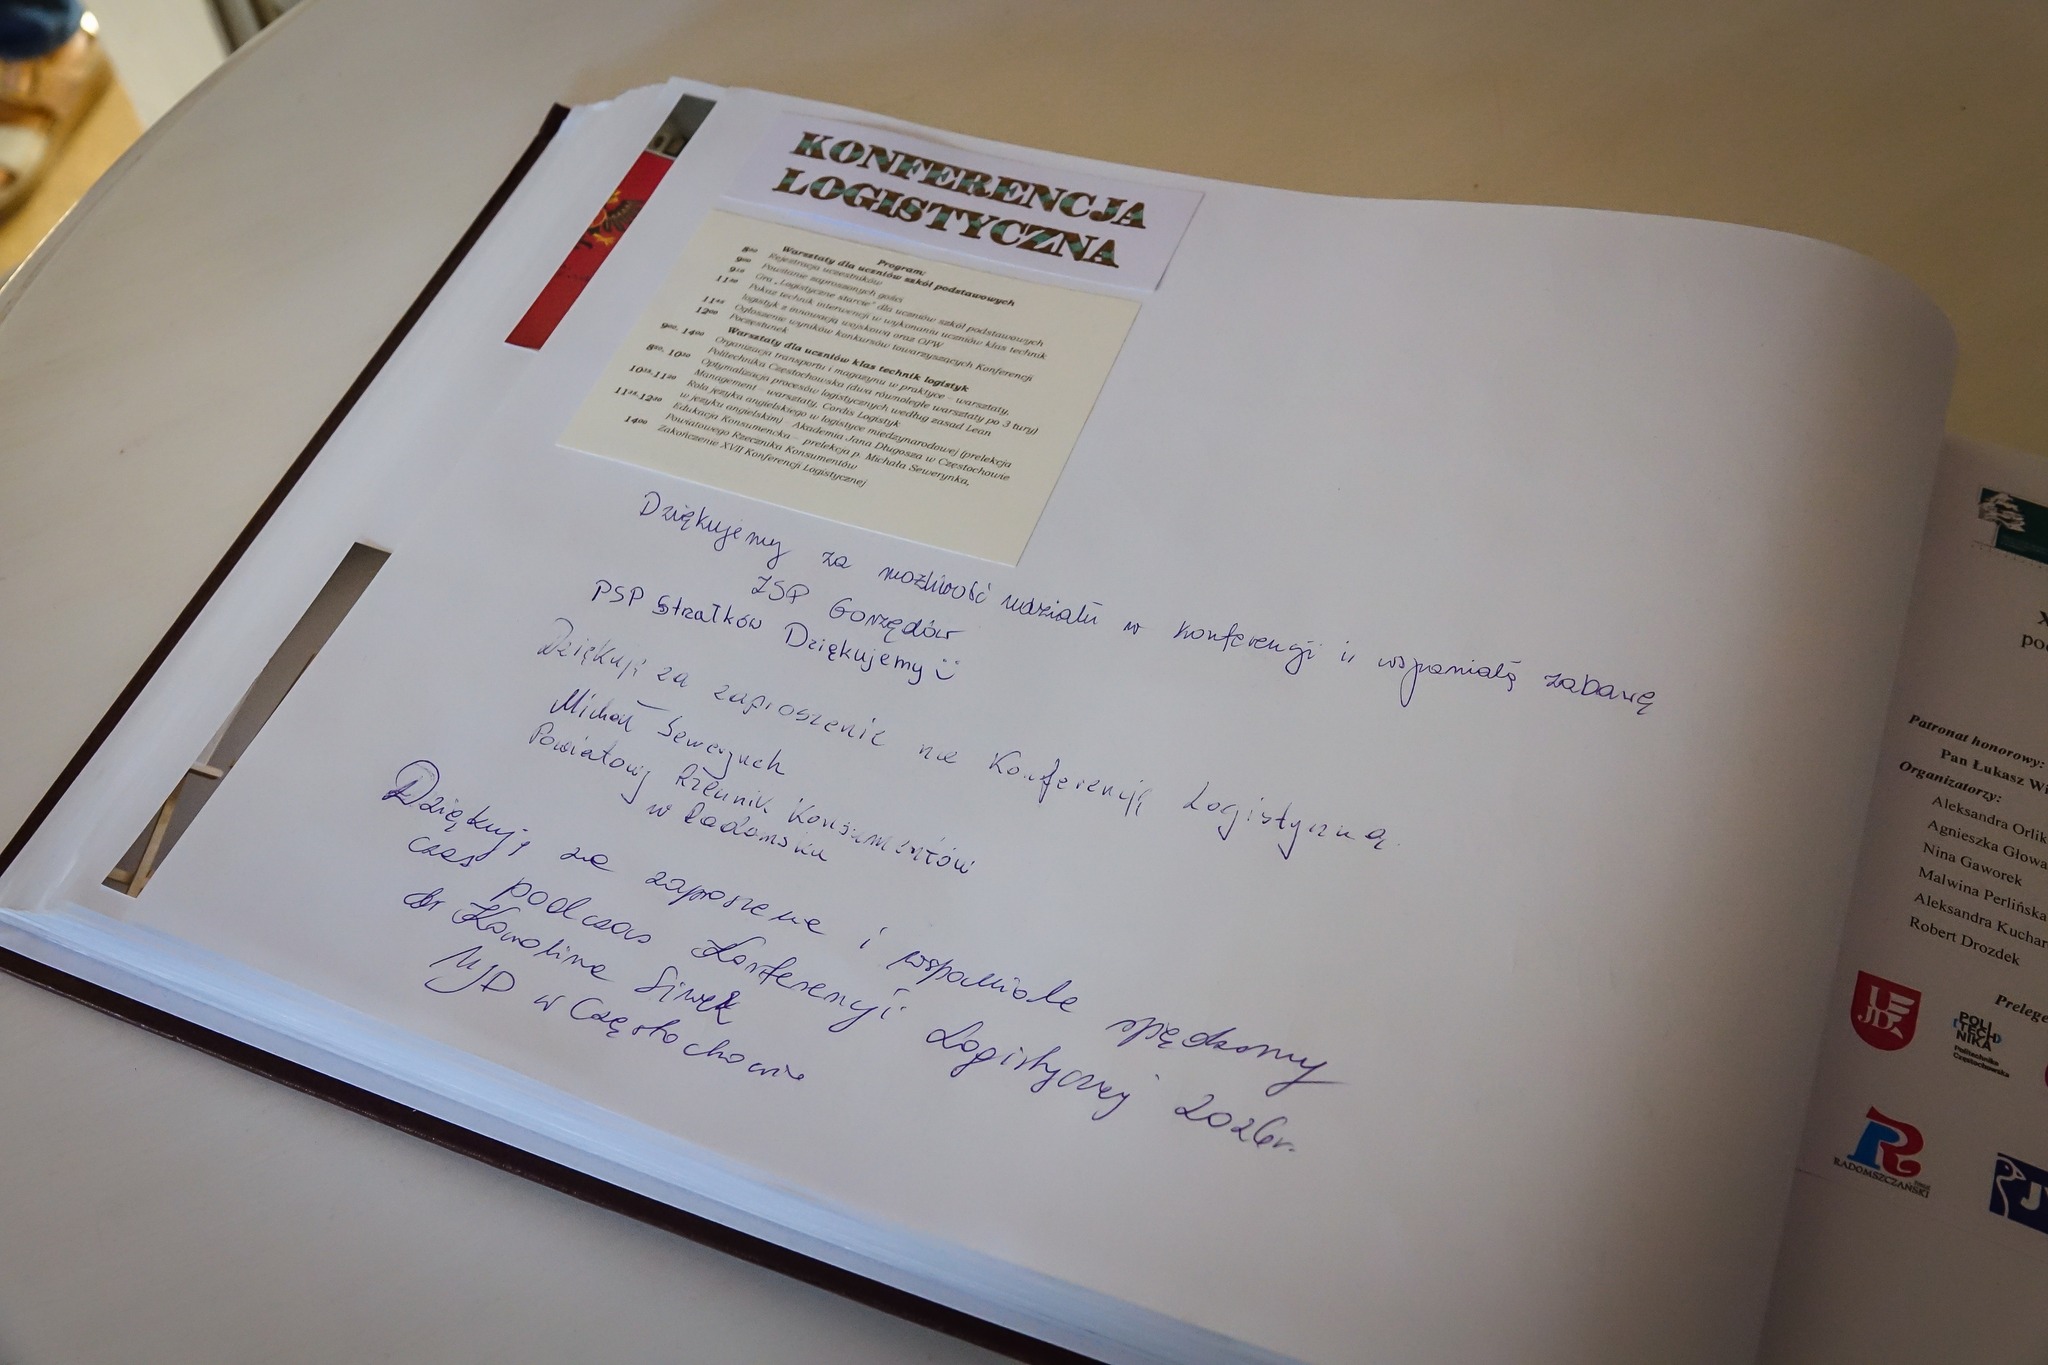 KONFERENCJA
LOGISTYCZNA
Program:
Warsztaty dla uczniów szkół podstawowych
8⁰⁰ Rejestracja uczestników
9⁰⁰ Powitanie zaproszonych gości
9¹⁰ Gra „Logistyczne starcie” dla uczniów szkół podstawowych
11²⁰ Pokaz technik interwencji w wykonaniu uczniów klas technik
logistyk z innowacją wojskową oraz OPW
11⁴⁵ Ogłoszenie wyników konkursów towarzyszących Konferencji
12⁰⁰ Poczęstunek
Warsztaty dla uczniów klas technik logistyk
9⁰⁰, 14⁰⁰ Organizacja transportu i magazynu w praktyce – warsztaty,
Politechnika Częstochowska (dwa równoległe warsztaty po 3 tury)
Optymalizacja procesów logistycznych według zasad Lean
Management – warsztaty, Cordis Logistyk
Rola języka angielskiego w logistyce międzynarodowej (prelekcja
w języku angielskim) – Akademia Jana Długosza w Częstochowie
Edukacja Konsumencka – prelekcja p. Michała Sewerynka,
Powiatowego Rzecznika Konsumentów
14⁰⁰ Zakończenie XVII Konferencji Logistycznej
Dziękujemy za możliwość udziału w konferencji i wspaniałą zabawę
ZSP Gorzędów
PSP Strzałków Dziękujemy ☺
Dziękuję za zaproszenie na Konferencję Logistyczną.
Michał Sewerynek
Powiatowy Rzecznik Konsumentów
w Radomsku
Dziękuję za zaproszenie i wspaniale spędzony
czas podczas Konferencji Logistycznej 2026r.
dr Karolina Siwek
UJD w Częstochowie
Patronat honorowy:
Pan Łukasz
Organizatorzy:
Aleksandra
Agnieszka
Nina Gaworek
Malwina Perlińska
Aleksandra
Robert Drozdek
UJD
POLITECHNIKA
Politechnika
Częstochowska
R
RADOMSZCZAŃSKI